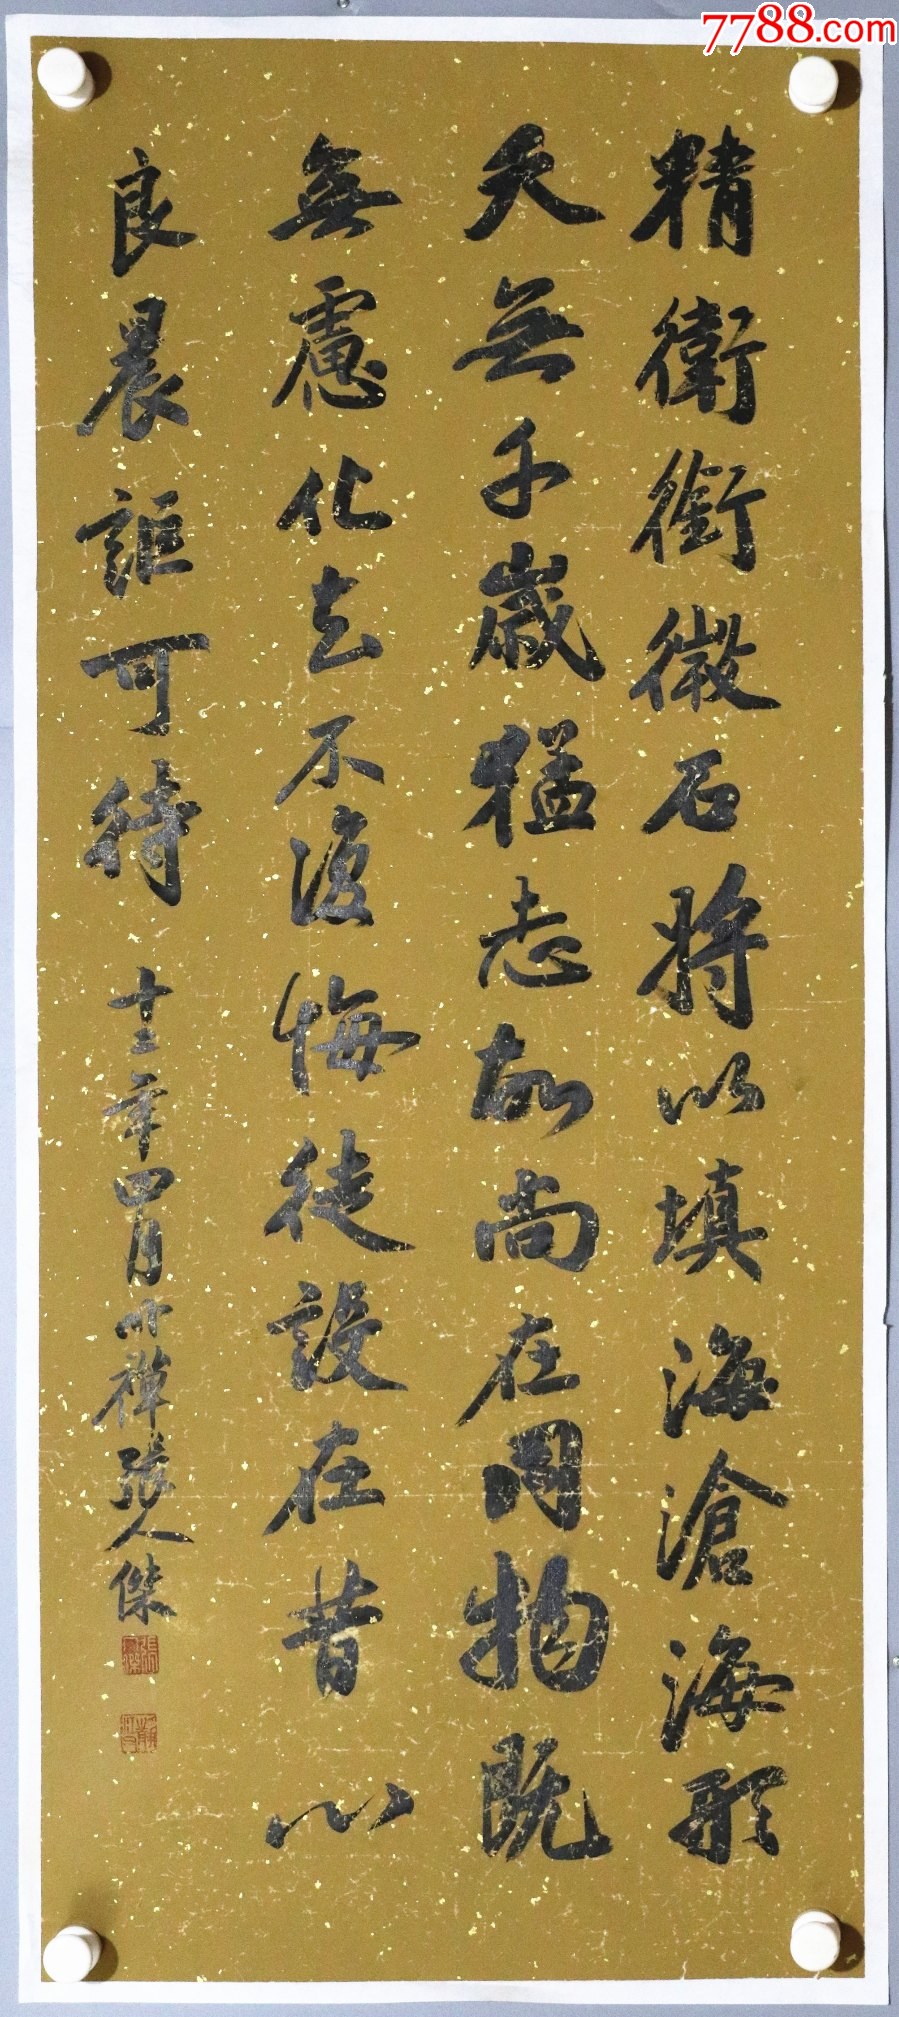 7788.com
精衛銜微石將以填海滄海形
天無千歲猛志故尚在同物既
無慮化去不復悔徒設在昔心
良晨詎可待 十三年四月臥禪張人傑